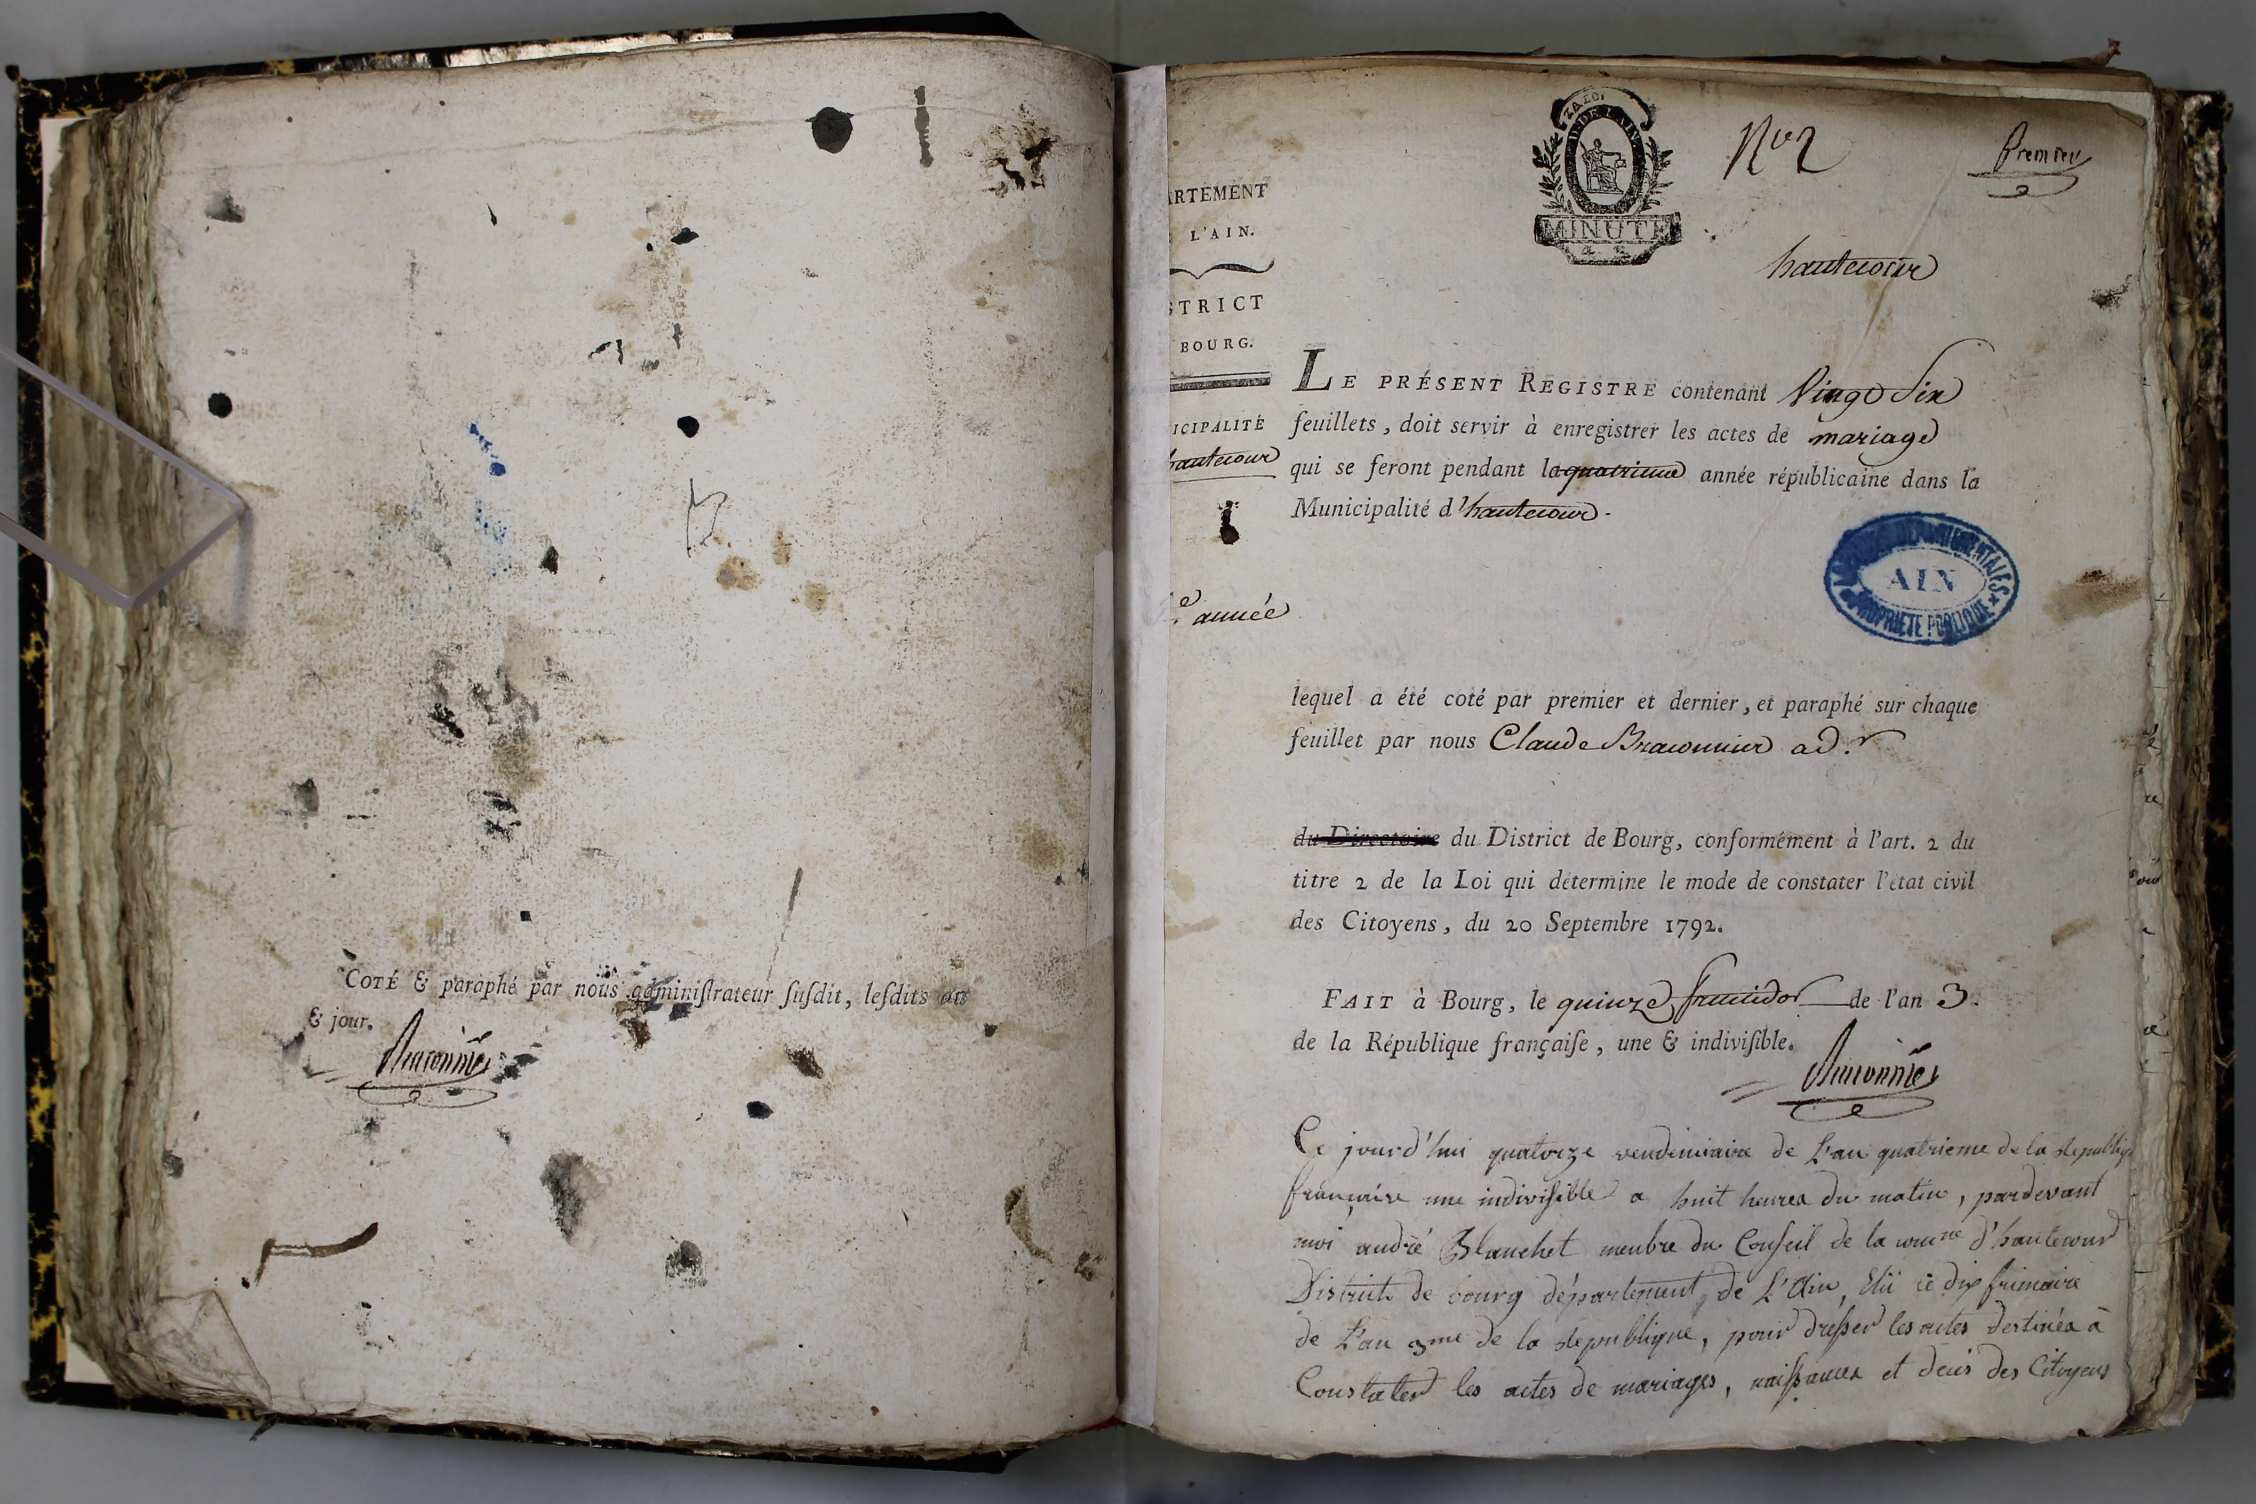 COTÉ & paraphé par nous administrateur susdit, lesdits an
& jour.
Braconnier
LA LOI
D. DE L'AIN
MINUTE
N.er 2
Premier
hautecour
ARTEMENT
L'AIN.
STRICT
BOURG.
ICIPALITÉ
hautecour
e année
LE PRÉSENT REGISTRE contenant Vingt Six
feuillets, doit servir à enregistrer les actes de mariage
qui se feront pendant la quatrieme année républicaine dans la
Municipalité d'hautecour.
ARCHIVES DÉPARTEMENTALES
AIN
PROPRIÉTÉ PUBLIQUE
lequel a été coté par premier et dernier, et paraphé sur chaque
feuillet par nous Claude Braconnier ad.r
du Directoire du District de Bourg, conformément à l'art. 2 du
titre 2 de la Loi qui détermine le mode de constater l'état civil
des Citoyens, du 20 Septembre 1792.
FAIT à Bourg, le quinze fructidor de l'an 3.
de la République française, une & indivisible.
Braconnier
Ce jourd'hui quatorze vendimiaire de L'an quatrieme de la republiq
française une indivisible a huit heures du matin, pardevant
moi andré Blanchet menbre du Conseil de la comne d'hautecour
District de bourg département de L'Ain, élu le dix frimaire
de L'an 3me de la republique, pour dresser les actes destinés à
Constater les actes de mariages, naissances et decis des Citoyens